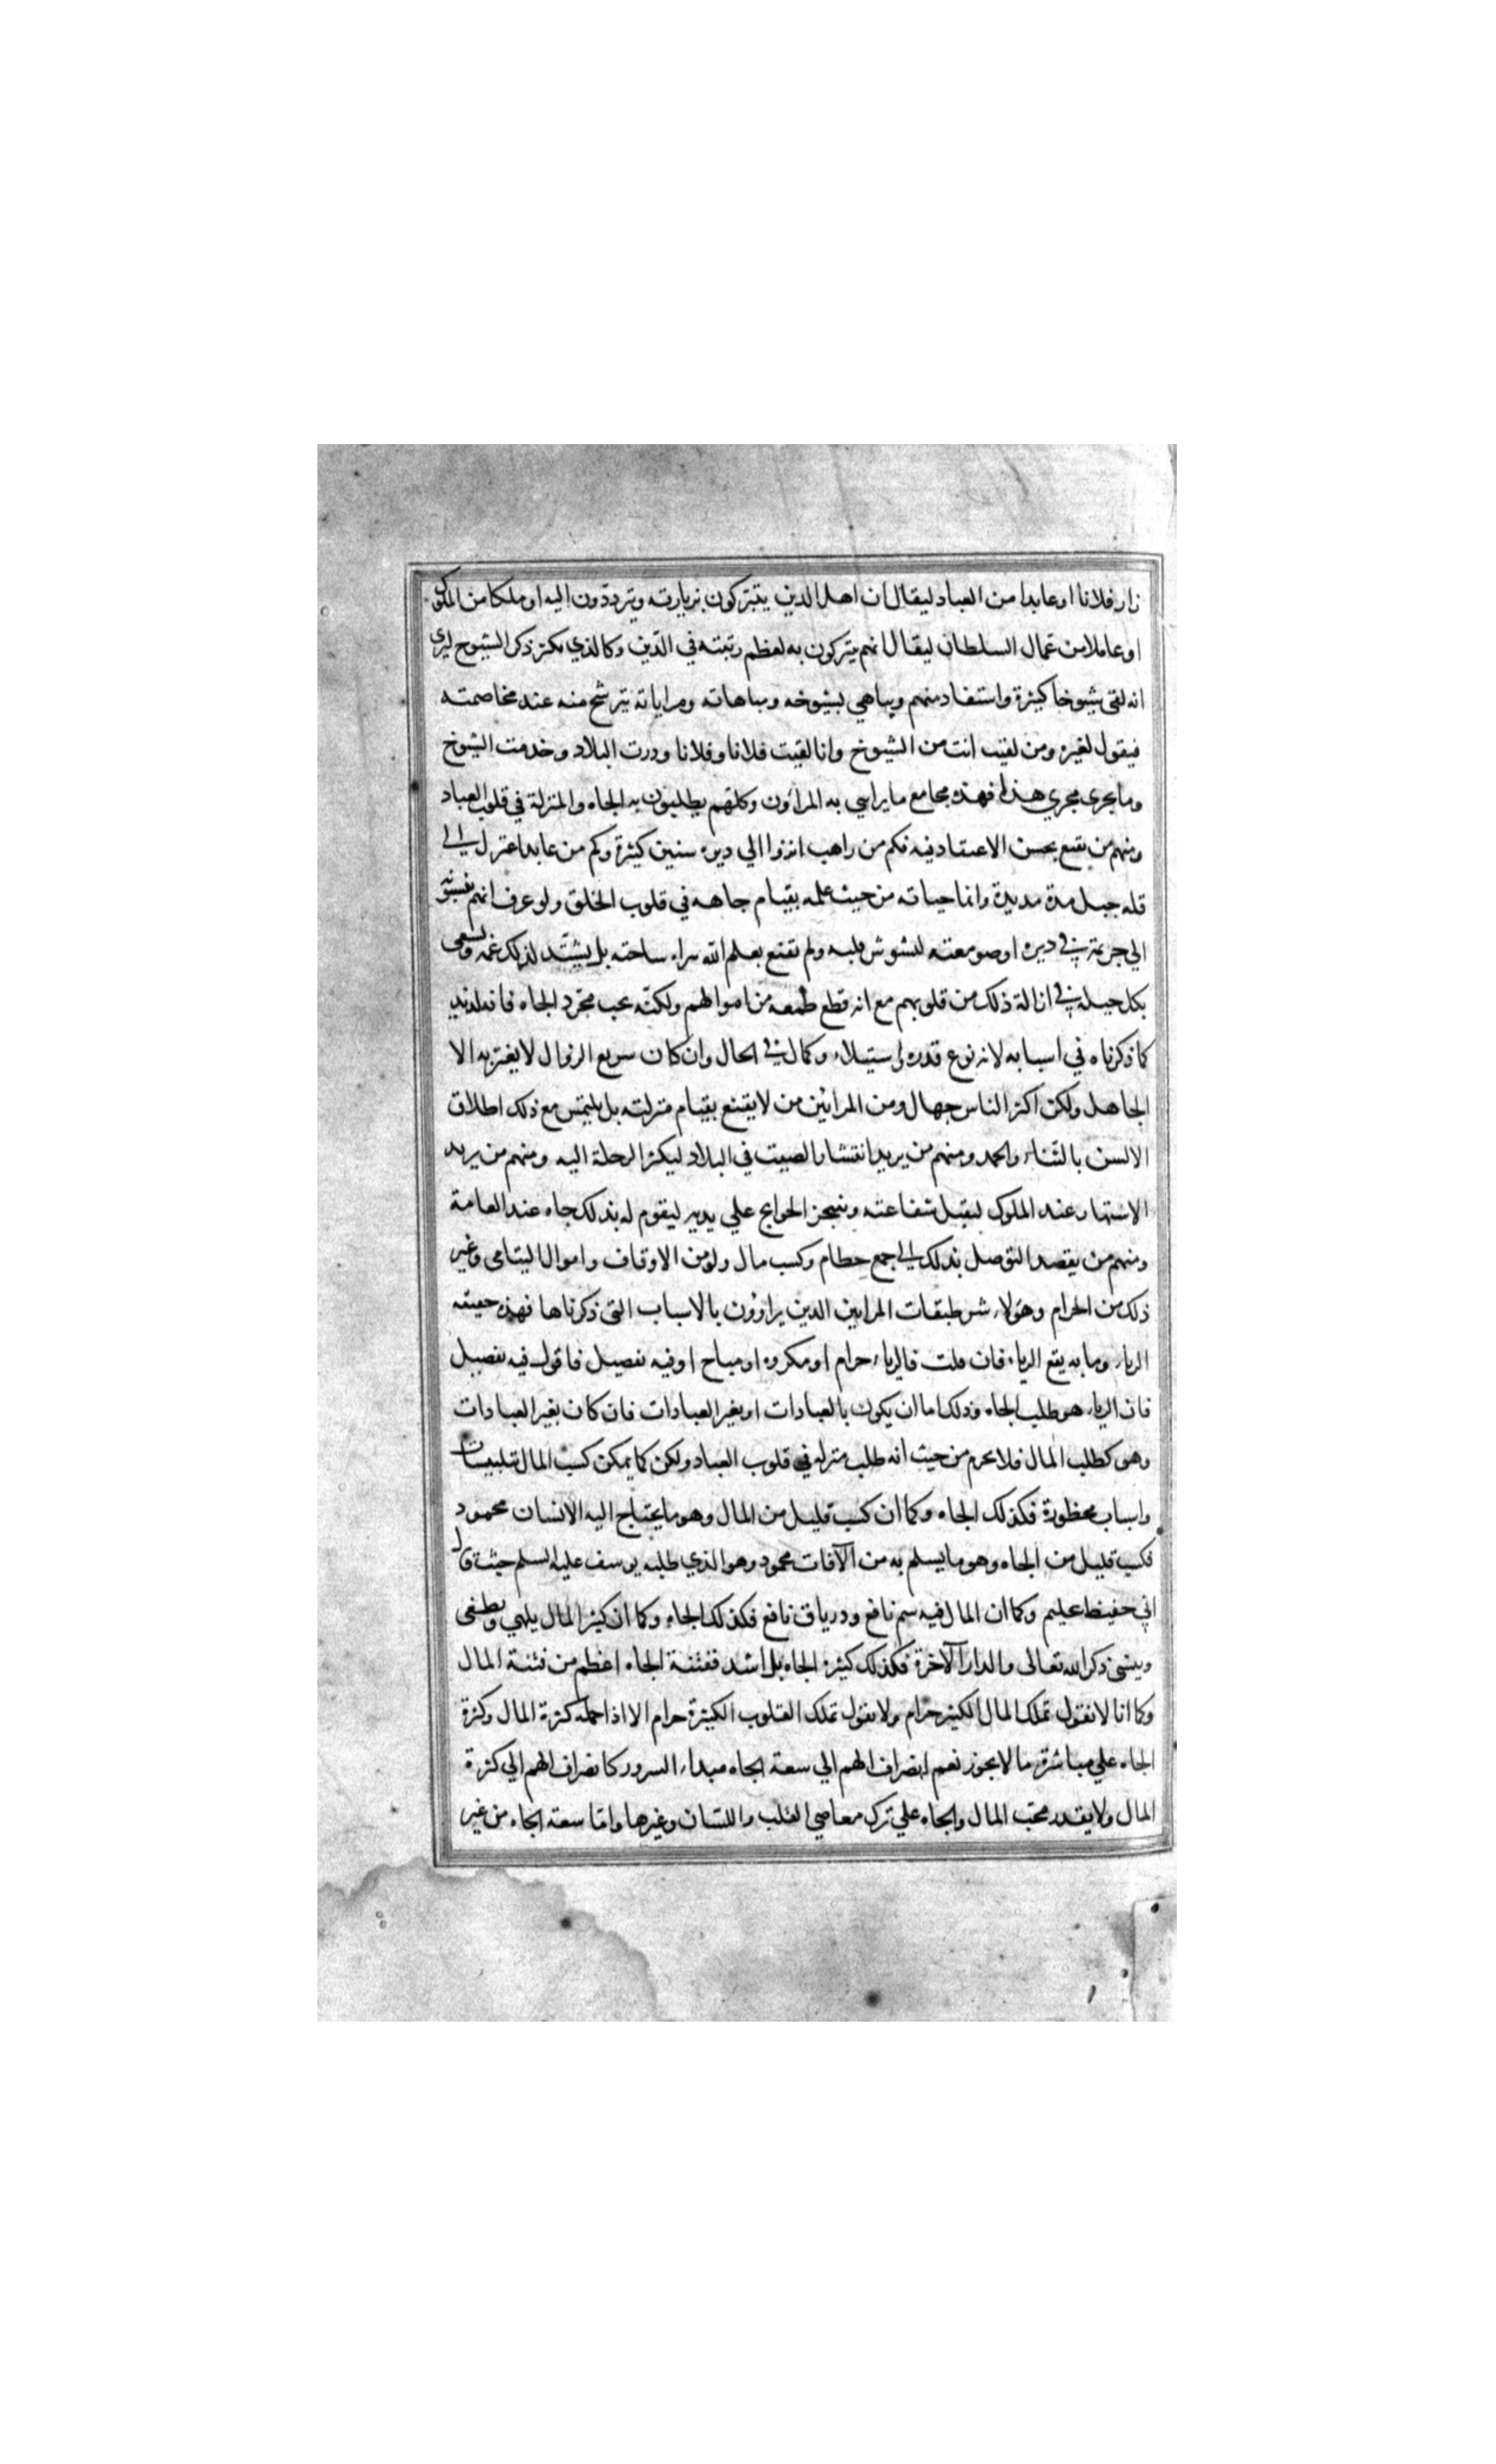 زار فلانا او عابدا من العباد ليقال ان اهل الدين يتبركون بزيارته ويترددون اليه او ملكا من الملوك
او عاملا من عمال السلطان ليقال انهم يتبركون به لعظم رتبته في الدين وكالذي يكثر ذكر الشيوخ ليرى
انه لقي شيوخا كثيرة واستفاد منهم ويباهي بشيوخه ومباهاته ومراياته تترشح منه عند مخاصمته
فيقول لغيره ومن لقيت انت من الشيوخ وانا لقيت فلانا وفلانا ودرت البلاد وخدمت الشيوخ
وما يجرى مجري هذا فهذه مجامع ما يرائي به المراؤن وكلهم يطلبون به الجاه والمنزلة في قلوب العباد
ومنهم من يقنع بحسن الاعتقاد فيه فكم من راهب انزوا الي ديره سنين كثيرة وكم من عابد اعتزل الى
قله جبل مدة مديدة وانما حياته من حيث علمه بقيام جاهه في قلوب الخلق ولو عرف انهم نسبوه
الي جريمة في ديره او صومعته لتشوش قلبه ولم يقنع بعلم الله براه ساحته بل يشتد لذلك غمه ويسعى
بكل حيله في ازالة ذلك من قلوبهم مع انه قطع طمعه من اموالهم ولكنه يحب مجرد الجاه فانه لذيذ
كما ذكرناه في اسبابه لانه نوع قدره واستيلاء وكمال في الحال وان كان سريع الزوال لا يغتر به الا
الجاهل ولكن اكثر الناس جهال ومن المرائين من لا يقنع بقيام منزلته بل يلتمس مع ذلك اطلاق
الالسن بالثناء والحمد ومنهم من يريد انتشار الصيت في البلاد ليكثر الرحلة اليه ومنهم من يريد
الاشتهار عند الملوك ليقبل شفاعته وينجز الحوايج علي يديه ليقوم له بذلك جاه عند العامة
ومنهم من يقصد التوصل بذلك الى جمع حطام وكسب مال ولو من الاوقاف واموال اليتامى وغير
ذلك من الحرام وهؤلاء شر طبقات المرايين الذين يراؤون بالاسباب التي ذكرناها فهذه حقيقه
الرياء وما به يقع الرياء فان قلت فالرياء حرام او مكروه او مباح او فيه تفصيل فاقول فيه تفصيل
فان الرياء هو طلب الجاه وذلك اما ان يكون بالعبادات او بغير العبادات فان كان بغير العبادات
وهو كطلب المال فلا يحرم من حيث انه طلب منزله في قلوب العباد ولكن كما يمكن كسب المال بتلبيسات
واسباب محظورة فكذلك الجاه وكما ان كسب قليل من المال وهو ما يحتاج اليه الانسان محمود
فكسب قليل من الجاه وهو ما يسلم به من الآفات محمود وهو الذي طلبه يوسف عليه السلم حيث قال
اني حفيظ عليم وكما ان المال فيه سم نافع ودرياق نافع فكذلك الجاه وكما ان كثير المال يلهي ويطغى
وينسى ذكر الله تعالى والدار الآخرة فكذلك كثيره الجاه بل اشد ففتنة الجاه اعظم من فتنة المال
وكما انا لا نقول تملك المال الكثير حرام ولا نقول تملك القلوب الكثيرة حرام الا اذا حمله كثرة المال وكثرة
الجاه علي مباشرة ما لا يجوز نعم انصراف الهم الي سعة الجاه مبداء السرور كانصراف الهم الي كثرة
المال ولا يقدر محب المال والجاه علي ترك معاصي القلب واللسان وغيرها واما سعة الجاه من غير